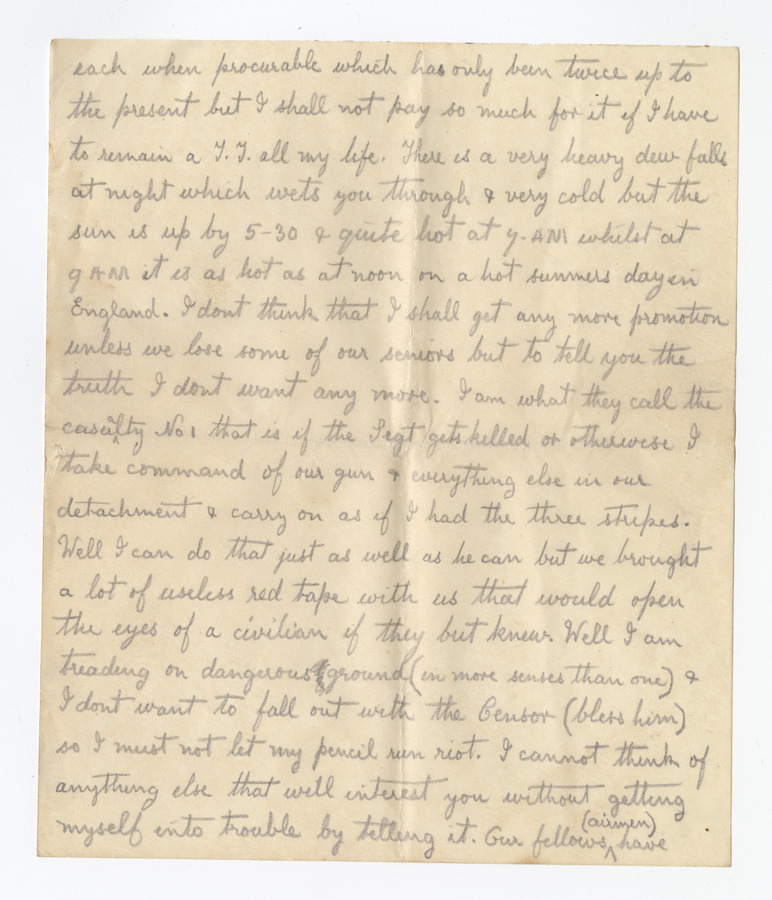 each when procurable which has only been twice up to
the present but I shall not pay so much for it if I have
to remain a T.T. all my life. There is a very heavy dew falls
at night which wets you through & very cold but the
sun is up by 5-30 & quite hot at 7-AM whilst at
9 AM it is as hot as at noon on a hot summers day in
England. I dont think that I shall get any more promotion
unless we lose some of our seniors but to tell you the
truth I dont want any more. I am what they call the
casualty No 1 that is if the Segt gets killed or otherwise I
take command of our gun & everything else in our
detachment & carry on as if I had the three stripes.
Well I can do that just as well as he can but we brought
a lot of useless red tape with us that would open
the eyes of a civilian if they but knew. Well I am
treading on dangerous ground (in more senses than one) &
I dont want to fall out with the Censor (bless him)
so I must not let my pencil run riot. I cannot think of
anything else that well interest you without getting
myself into trouble by telling it. Our fellows (airmen) have